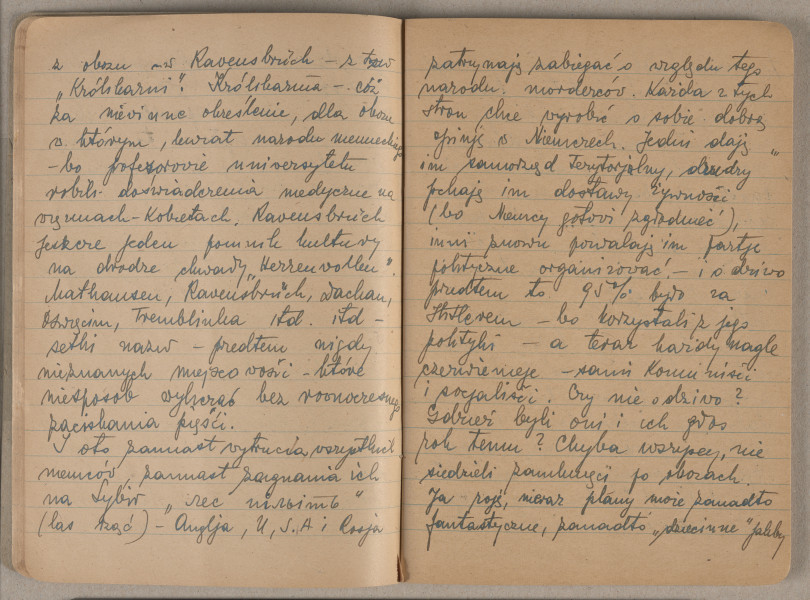 z obozu – w Ravensbrück – z tzw
„Królikarni". Królikarnia – cóż
za niewinne określenie, dla obozu
w którym, kwiat narodu niemieckiego
– bo pofezorowie uniwersytetu
robili doświadczenia medyczne na
więzniach – Kobietach. Ravensbrück
jeszcze jeden pomnik kultury
na drodze chwały „Herrenvolken".
Mathausen, Ravensbrück, Dachau,
Oswięcim, Tremblinka itd. itd –
setki nazw – predtem nigdy
nieznanych miejscowości – które
niesposób wyliczać bez rownoczesnego
zaciskania pięści.
I oto zamiast wytrucia wszystkich
niemców zamiast zagnania ich
na Sybir „лес пільіть"
(las rżąć) – Anglja, U,S,A i Rosja
zatrzynają zabiegać o względu tego
narodu morderców. Każda z tych
stron chce wyrobić o sobie dobrą
opinję w Niemczech. Jedni dają
im samorząd Terytorjalny, drudzy
pchają im dostawy żywności
(bo Niemcy gotowi zgłodnieć),
inni znowu pozwalają im partje
polityczne organizować. – i o dziwo
predtem to 95% było za
Hitlerem – bo korzystali z jego
polityki – a teraz każdy nagle
czerwienieje – sami Komuniści
i socjaliści. Czy nie dziwo?
Gdzież byli oni i ich głos
rok temu? Chyba wszyscy, nie
siedzieli zamknięci po obozach.
Ja – roję, nieraz plany może zanadto
fantastyczne, zanadto „dziecinne" jakby